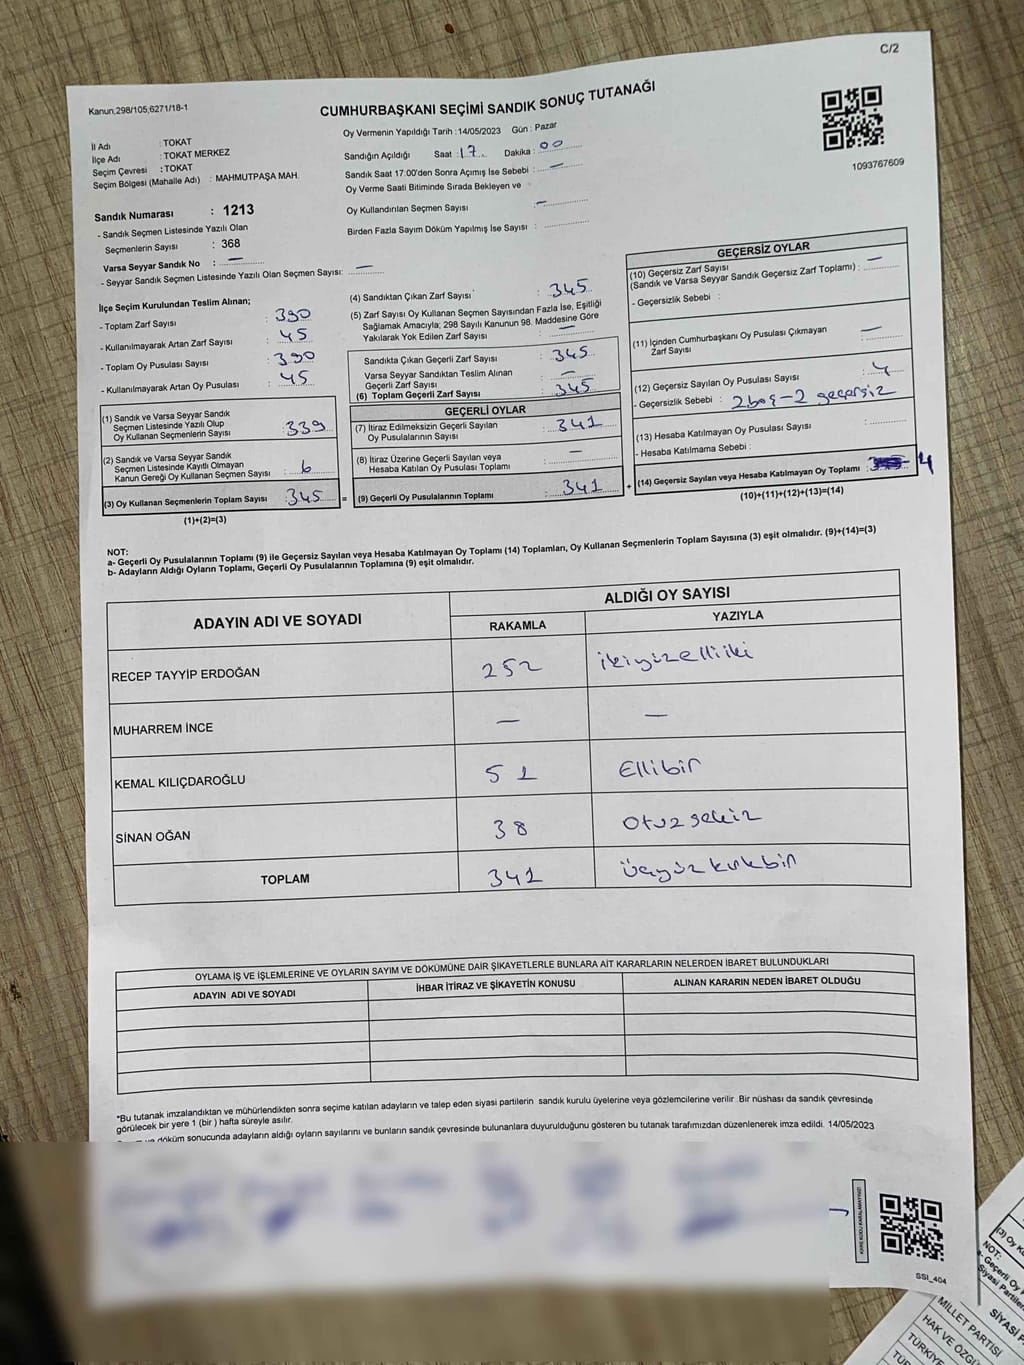 C/2
Kanun;298/105,6271/18-1
CUMHURBAŞKANI SEÇİMİ SANDIK SONUÇ TUTANAĞI
1093767609
İl Adı : TOKAT
İlçe Adı : TOKAT MERKEZ
Seçim Çevresi : TOKAT
Seçim Bölgesi (Mahalle Adı) : MAHMUTPAŞA MAH.
Sandık Numarası : 1213
- Sandık Seçmen Listesinde Yazılı Olan
Seçmenlerin Sayısı : 368
Varsa Seyyar Sandık No : —
- Seyyar Sandık Seçmen Listesinde Yazılı Olan Seçmen Sayısı: —
Oy Vermenin Yapıldığı Tarih :14/05/2023 Gün : Pazar
Sandığın Açıldığı Saat :17 Dakika : 00
Sandık Saat 17:00'den Sonra Açımış İse Sebebi : —
Oy Verme Saati Bitiminde Sırada Bekleyen ve
Oy Kullandırılan Seçmen Sayısı : —
Birden Fazla Sayım Döküm Yapılmış İse Sayısı :
İlçe Seçim Kurulundan Teslim Alınan;
- Toplam Zarf Sayısı : 390
- Kullanılmayarak Artan Zarf Sayısı : 45
- Toplam Oy Pusulası Sayısı : 390
- Kullanılmayarak Artan Oy Pusulası : 45
(1) Sandık ve Varsa Seyyar Sandık
Seçmen Listesinde Yazılı Olup
Oy Kullanan Seçmenlerin Sayısı : 339
(2) Sandık ve Varsa Seyyar Sandık
Seçmen Listesinde Kayıtlı Olmayan
Kanun Gereği Oy Kullanan Seçmen Sayısı : 6
(3) Oy Kullanan Seçmenlerin Toplam Sayısı : 345 =
(1)+(2)=(3)
(4) Sandıktan Çıkan Zarf Sayısı : 345
(5) Zarf Sayısı Oy Kullanan Seçmen Sayısından Fazla İse, Eşitliği
Sağlamak Amacıyla; 298 Sayılı Kanunun 98. Maddesine Göre
Yakılarak Yok Edilen Zarf Sayısı : —
Sandıkta Çıkan Geçerli Zarf Sayısı : 345
Varsa Seyyar Sandıktan Teslim Alınan
Geçerli Zarf Sayısı : —
(6) Toplam Geçerli Zarf Sayısı : 345
GEÇERLİ OYLAR
(7) İtiraz Edilmeksizin Geçerli Sayılan
Oy Pusulalarının Sayısı : 341
(8) İtiraz Üzerine Geçerli Sayılan veya
Hesaba Katılan Oy Pusulası Toplamı : —
(9) Geçerli Oy Pusulalarının Toplamı : 341 +
GEÇERSİZ OYLAR
(10) Geçersiz Zarf Sayısı
(Sandık ve Varsa Seyyar Sandık Geçersiz Zarf Toplamı) : —
- Geçersizlik Sebebi :
(11) İçinden Cumhurbaşkanı Oy Pusulası Çıkmayan
Zarf Sayısı : —
(12) Geçersiz Sayılan Oy Pusulası Sayısı : 4
- Geçersizlik Sebebi : 2 boş - 2 geçersiz
(13) Hesaba Katılmayan Oy Pusulası Sayısı :
- Hesaba Katılmama Sebebi :
(14) Geçersiz Sayılan veya Hesaba Katılmayan Oy Toplamı : 4
(10)+(11)+(12)+(13)=(14)
NOT:
a- Geçerli Oy Pusulalarının Toplamı (9) ile Geçersiz Sayılan veya Hesaba Katılmayan Oy Toplamı (14) Toplamları, Oy Kullanan Seçmenlerin Toplam Sayısına (3) eşit olmalıdır. (9)+(14)=(3)
b- Adayların Aldığı Oyların Toplamı, Geçerli Oy Pusulalarının Toplamına (9) eşit olmalıdır.
ADAYIN ADI VE SOYADI
ALDIĞI OY SAYISI
RAKAMLA YAZIYLA
RECEP TAYYİP ERDOĞAN 252 ikiyüzelliiki
MUHARREM İNCE — —
KEMAL KILIÇDAROĞLU 51 Ellibir
SİNAN OĞAN 38 Otuzsekiz
TOPLAM 341 Üçyüzkırkbir
OYLAMA İŞ VE İŞLEMLERİNE VE OYLARIN SAYIM VE DÖKÜMÜNE DAİR ŞİKAYETLERLE BUNLARA AİT KARARLARIN NELERDEN İBARET BULUNDUKLARI
ADAYIN ADI VE SOYADI İHBAR İTİRAZ VE ŞİKAYETİN KONUSU ALINAN KARARIN NEDEN İBARET OLDUĞU
*Bu tutanak imzalandıktan ve mühürlendikten sonra seçime katılan adayların ve talep eden siyasi partilerin sandık kurulu üyelerine veya gözlemcilerine verilir. Bir nüshası da sandık çevresinde
görülecek bir yere 1 (bir ) hafta süreyle asılır.
ve döküm sonucunda adayların aldığı oyların sayılarını ve bunların sandık çevresinde bulunanlara duyurulduğunu gösteren bu tutanak tarafımızdan düzenlenerek imza edildi. 14/05/2023
KARE KODU KARALAMAYINIZ!
SSI_404
(3) Oy
NOT:
a- Geçerli Oy
Siyasi Partiler
SİYASİ P
MİLLET PARTİSİ
HAK VE ÖZGÜ
TÜRKİY